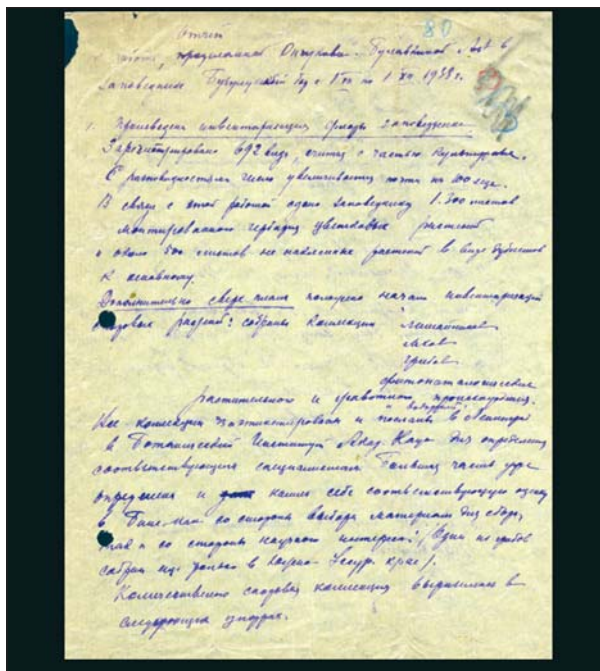 80
Отчет
о работе, проделанной Бутавкиной в
заповеднике Бузулукский бор с 1 по 1 1938 г.
1. Произведена инвентаризация флоры заповедника
Зарегистрировано 692 вида, считая с частью культурных.
С разновидностями число увеличивается почти на 100 еще.
В связи с этой работой сдано заповеднику 1.300 листов
монтированного гербария цветковых растений
и около 500 листов не наклеенных растений в виде дублетов
к основному.
Дополнительно сверх плана положено начало инвентаризации
споровых растений: собраны коллекции лишайников
мхов
грибов
фитопатологические
растительного и животного происхождения.
Все коллекции заэтикетированы и посланы в Ленинград
в Ботанический Институт Акад. Наук для определения
соответствующим специалистам. Большая часть уже
определена и нашла себе соответствующую оценку
в Бине как со стороны выбора материала для сбора,
так и со стороны научного интереса: /Один из грибов
собран еще только в Южно-Уссур. крае/.
Количественно споровая коллекция выразилась в
следующих цифрах.